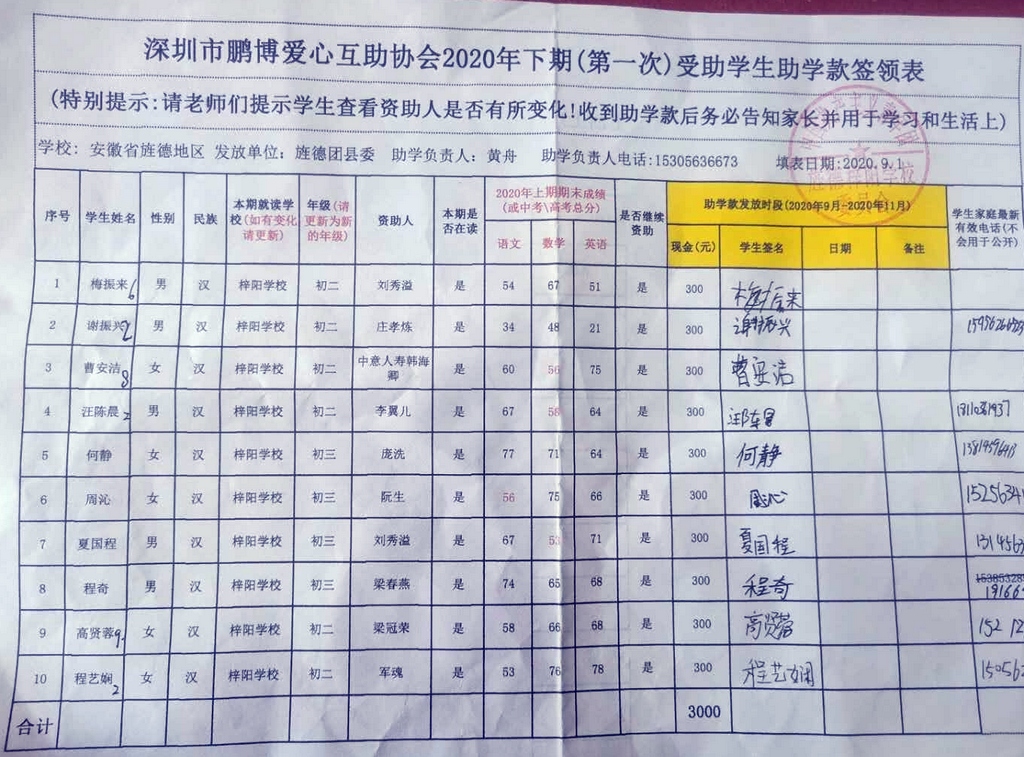 深圳市鹏博爱心互助协会2020年下期(第一次)受助学生助学款签领表
(特别提示:请老师们提示学生查看资助人是否有所变化!收到助学款后务必告知家长并用于学习和生活上)
学校: 安徽省旌德地区 发放单位: 旌德团县委 助学负责人: 黄舟 助学负责人电话:15305636673 填表日期:2020.9.1
序号 学生姓名 性别 民族 本期就读学校(如有变化请更新) 年级(请更新为新的年级) 资助人 本期是否在读 2020年上期期末成绩(或中考\高考总分) 是否继续资助 助学款发放时段(2020年9月-2020年11月) 学生家庭最新有效电话(不会用于公开)
语文 数学 英语 现金(元) 学生签名 日期 备注
1 梅振来 6 男 汉 梓阳学校 初二 刘秀溢 是 54 67 51 是 300 梅振来
2 谢振兴 2 男 汉 梓阳学校 初二 庄孝炼 是 34 48 21 是 300 谢振兴
3 曹安洁 8 女 汉 梓阳学校 初二 中意人寿韩海卿 是 60 56 75 是 300 曹安洁
4 汪陈晨 2 男 汉 梓阳学校 初二 李翼儿 是 67 58 64 是 300 汪陈晨
5 何静 女 汉 梓阳学校 初三 庞洗 是 77 71 64 是 300 何静
6 周沁 女 汉 梓阳学校 初三 阮生 是 56 75 66 是 300 周沁 1525634
7 夏国程 男 汉 梓阳学校 初三 刘秀溢 是 67 53 71 是 300 夏国程
8 程奇 男 汉 梓阳学校 初三 梁春燕 是 74 65 68 是 300 程奇
9 高贤蓉 9 女 汉 梓阳学校 初二 梁冠荣 是 58 66 68 是 300 高贤蓉 152 12
10 程艺娴 2 女 汉 梓阳学校 初二 军魂 是 53 76 78 是 300 程艺娴 150562
合计 3000